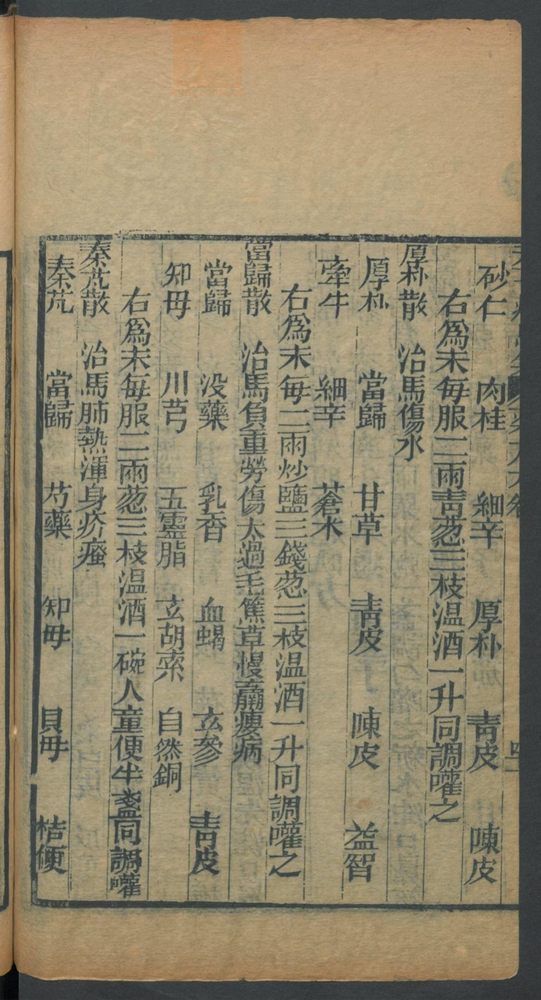 砂仁 肉桂 細辛 厚朴 青皮 陳皮
右爲末毎服二兩靑葱三枝温酒一升同調嚾之
厚朴散 治馬傷水
厚朴 當歸 甘草 靑皮 陳皮 益智
牽牛 細辛 蒼术
右爲末毎二兩炒鹽三錢葱三枝温酒一升同調嚾之
當歸散 治馬負重勞傷太過毛焦草慢羸瘦病
當歸 没藥 乳香 血蝎 玄參 靑皮
知母 川芎 五靈脂 玄胡索 自然銅
右爲末毎服二兩葱三枝温酒一碗人童便半盞同調嚾
秦艽散 治馬肺熱渾身疥癢
秦艽 當歸 芍藥 知母 貝母 桔便